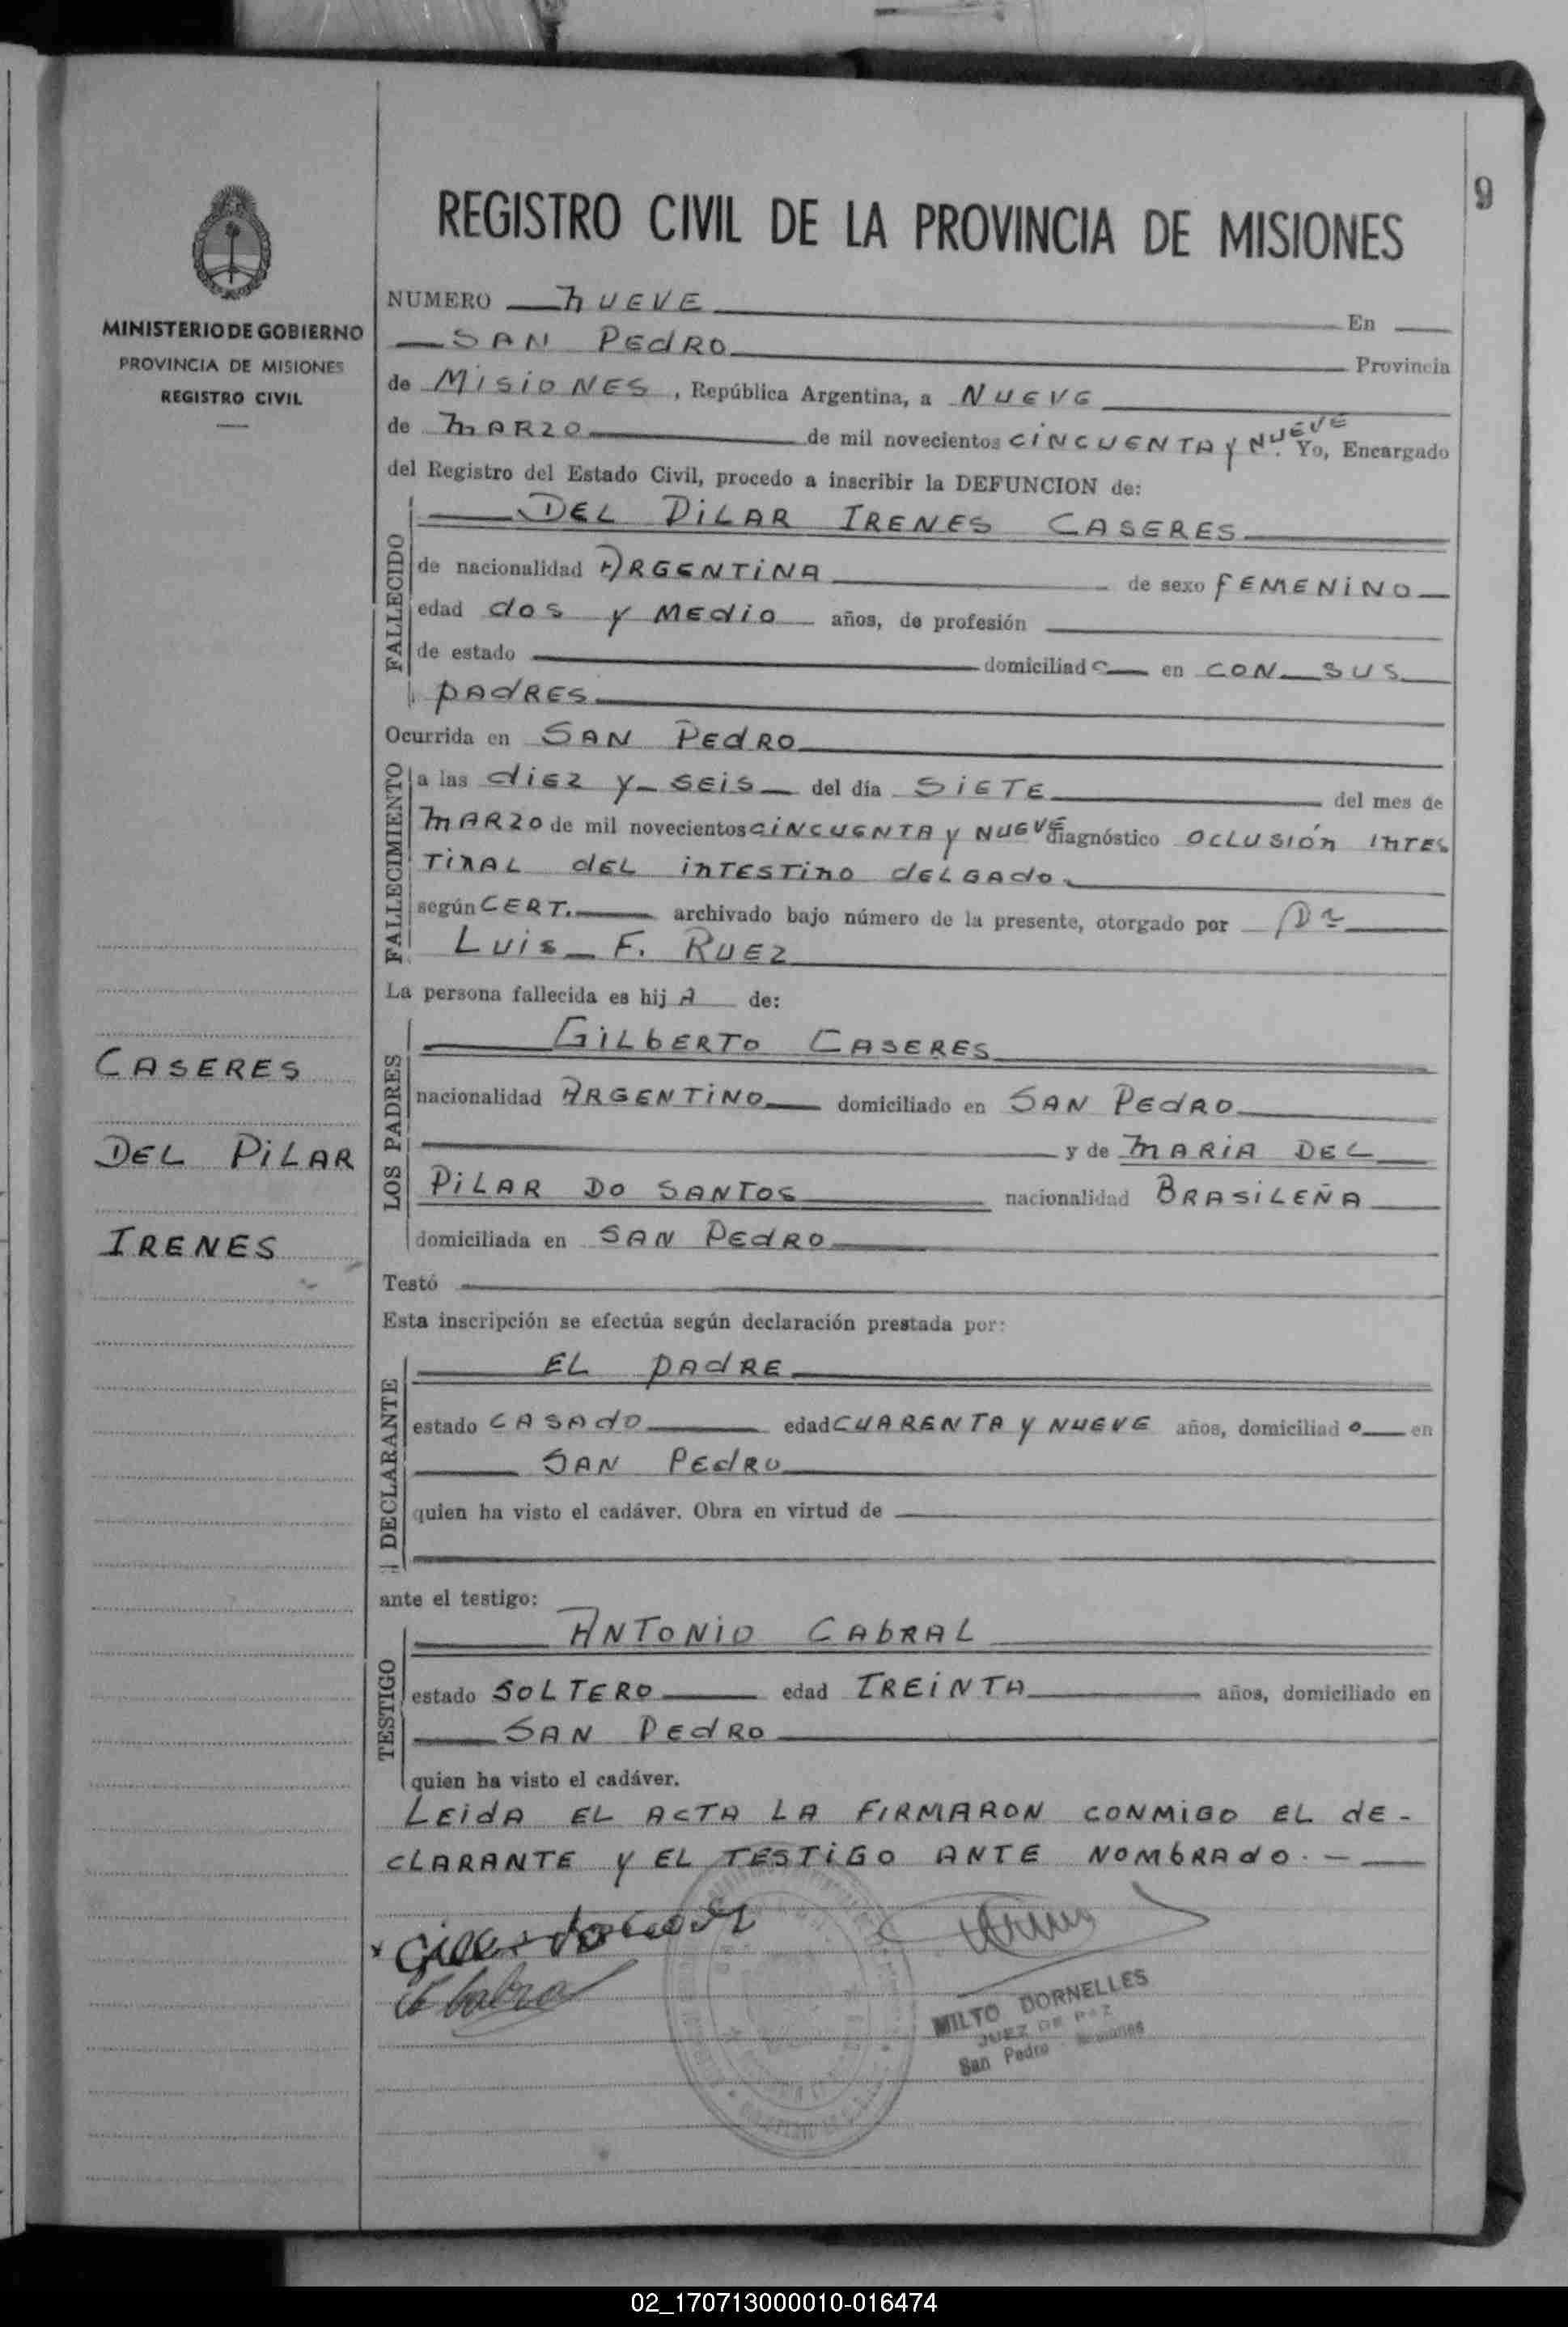 9
MINISTERIO DE GOBIERNO
PROVINCIA DE MISIONES
REGISTRO CIVIL
CASERES
DEL PILAR
IRENES
REGISTRO CIVIL DE LA PROVINCIA DE MISIONES
NUMERO NUEVE En
SAN PEDRO Provincia
de MISIONES, República Argentina, a NUEVE
de MARZO de mil novecientos CINCUENTA Y NUEVE. Yo, Encargado
del Registro del Estado Civil, procedo a inscribir la DEFUNCION de:
FALLECIDO
DEL PILAR IRENES CASERES
de nacionalidad ARGENTINA de sexo FEMENINO
edad dos y MEdio años, de profesión
de estado domiciliad en CON SUS
PAdRES
Ocurrida en SAN PEdRO
FALLECIMIENTO
a las diEZ y SEiS del día SiETE del mes de
MARZO de mil novecientos CINCUENTA y NUEVE diagnóstico OCLUSIÓN INTES
TINAL dEL INTESTINO dELGAdO
según CERT. archivado bajo número de la presente, otorgado por Dr
LUIS F. RUEZ
La persona fallecida es hij A de:
LOS PADRES
GILbERTO CASERES
nacionalidad ARGENTINO domiciliado en SAN PEdRO
y de MARIA DEL
PILAR DO SANTOS nacionalidad BRASILEÑA
domiciliada en SAN PEdRO
Testó
Esta inscripción se efectúa según declaración prestada por:
DECLARANTE
EL PAdRE
estado CASAdO edad CUARENTA Y NUEVE años, domiciliad o en
SAN PEdRO
quien ha visto el cadáver. Obra en virtud de
ante el testigo:
TESTIGO
ANTONIO CAbRAL
estado SOLTERO edad TREINTA años, domiciliado en
SAN PEdRO
quien ha visto el cadáver.
LEIdA EL ACTA LA FIRMARON CONMIGO EL dE-
CLARANTE Y EL TESTIGO ANTE NOMbRAdO.-
MILTO DORNELLES
JUEZ DE PAZ
San Pedro - Misiones
02_170713000010-016474